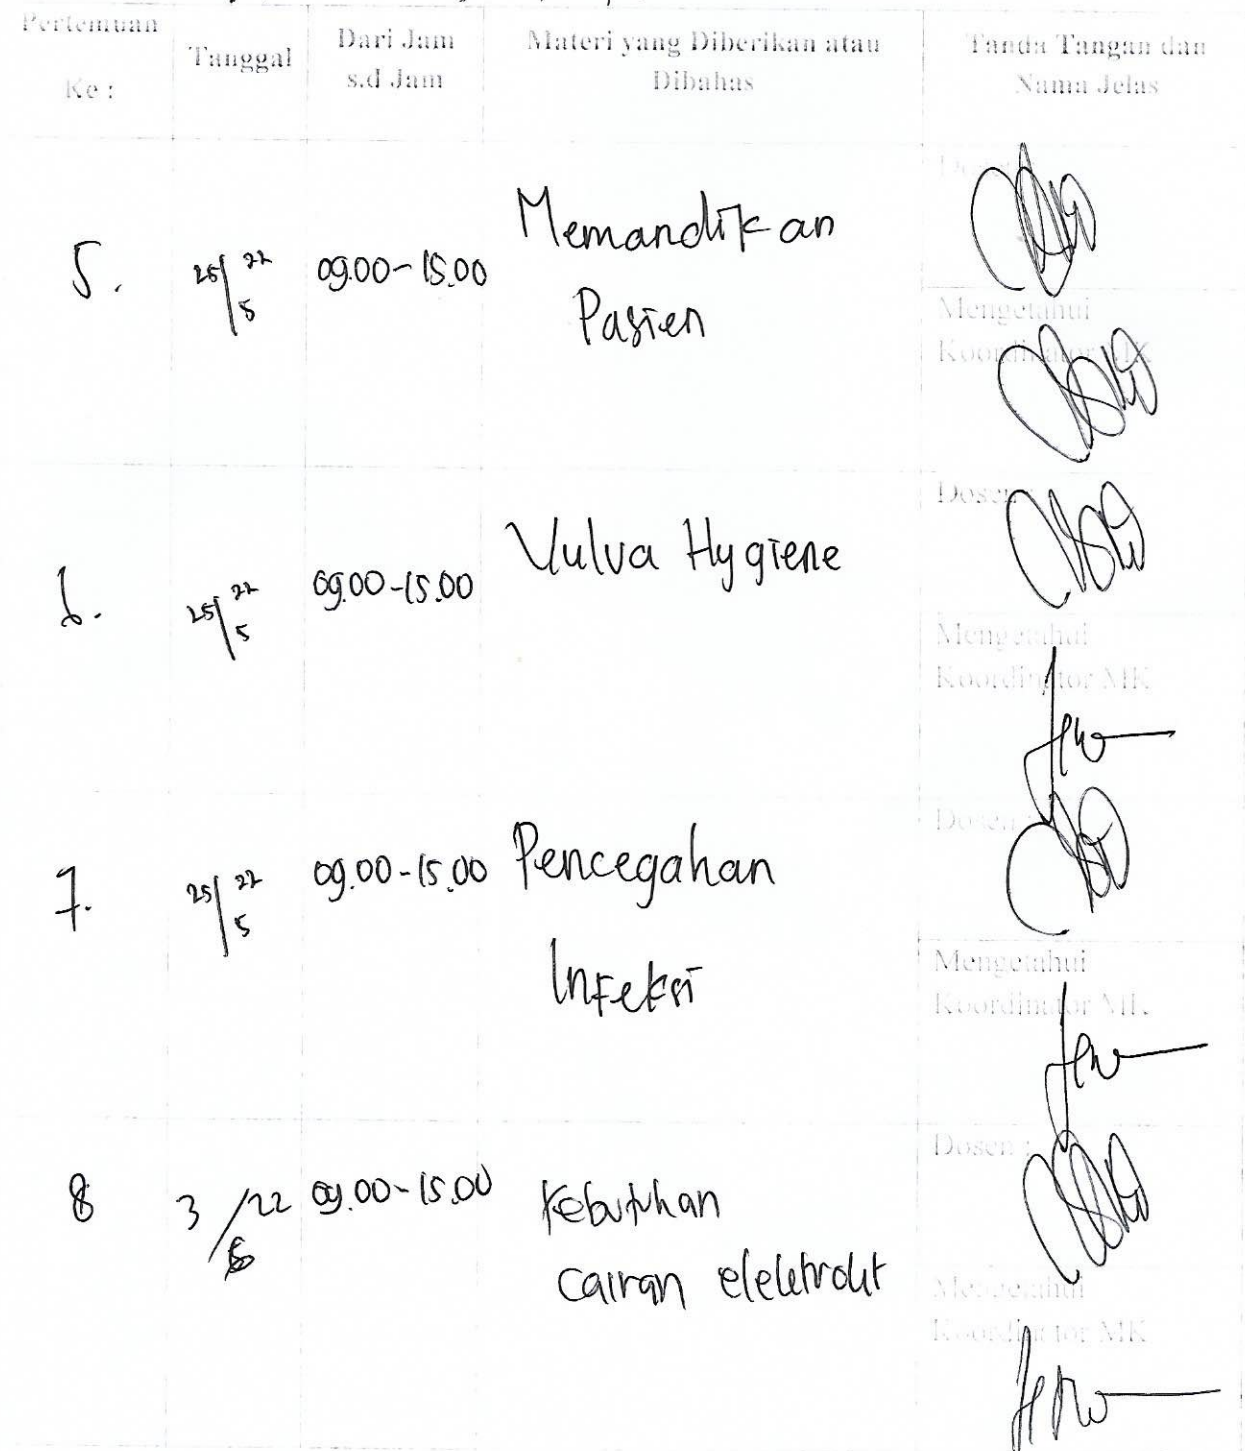 Pertemuan
Ke :
Tanggal
Dari Jam
s.d Jam
Materi yang Diberikan atau
Dibahas
Tanda Tangan dan
Nama Jelas
5.
25/5 22
09.00-15.00
Memandikan
Pasien
Mengetahui
Koordinator MK
6.
25/5 22
09.00-15.00
Vulva Hygiene
Dosen
Mengetahui
Koordinator MK
7.
25/5 22
09.00-15.00
Pencegahan
Infeksi
Dosen :
Mengetahui
Koordinator MK
8
3/22
09.00-15.00
Kebutuhan
cairan elektrolit
Dosen :
Mengetahui
Koordinator MK